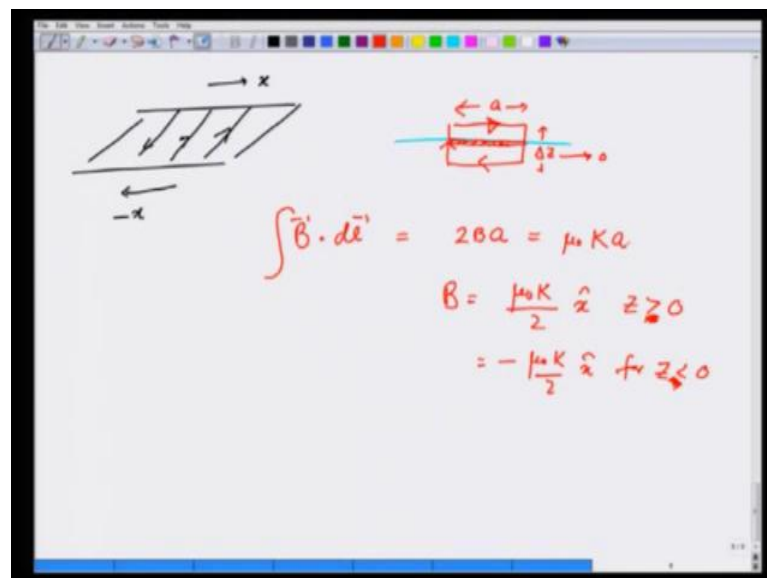 File Edit View Insert Actions Tools Help
→ x
← a →
Δz → 0
← -x
∫ B⃗ · dl⃗ = 2Ba = μ₀ Ka
B = μ₀K/2 x̂ z ≥ 0
= - μ₀K/2 x̂ for z ≤ 0